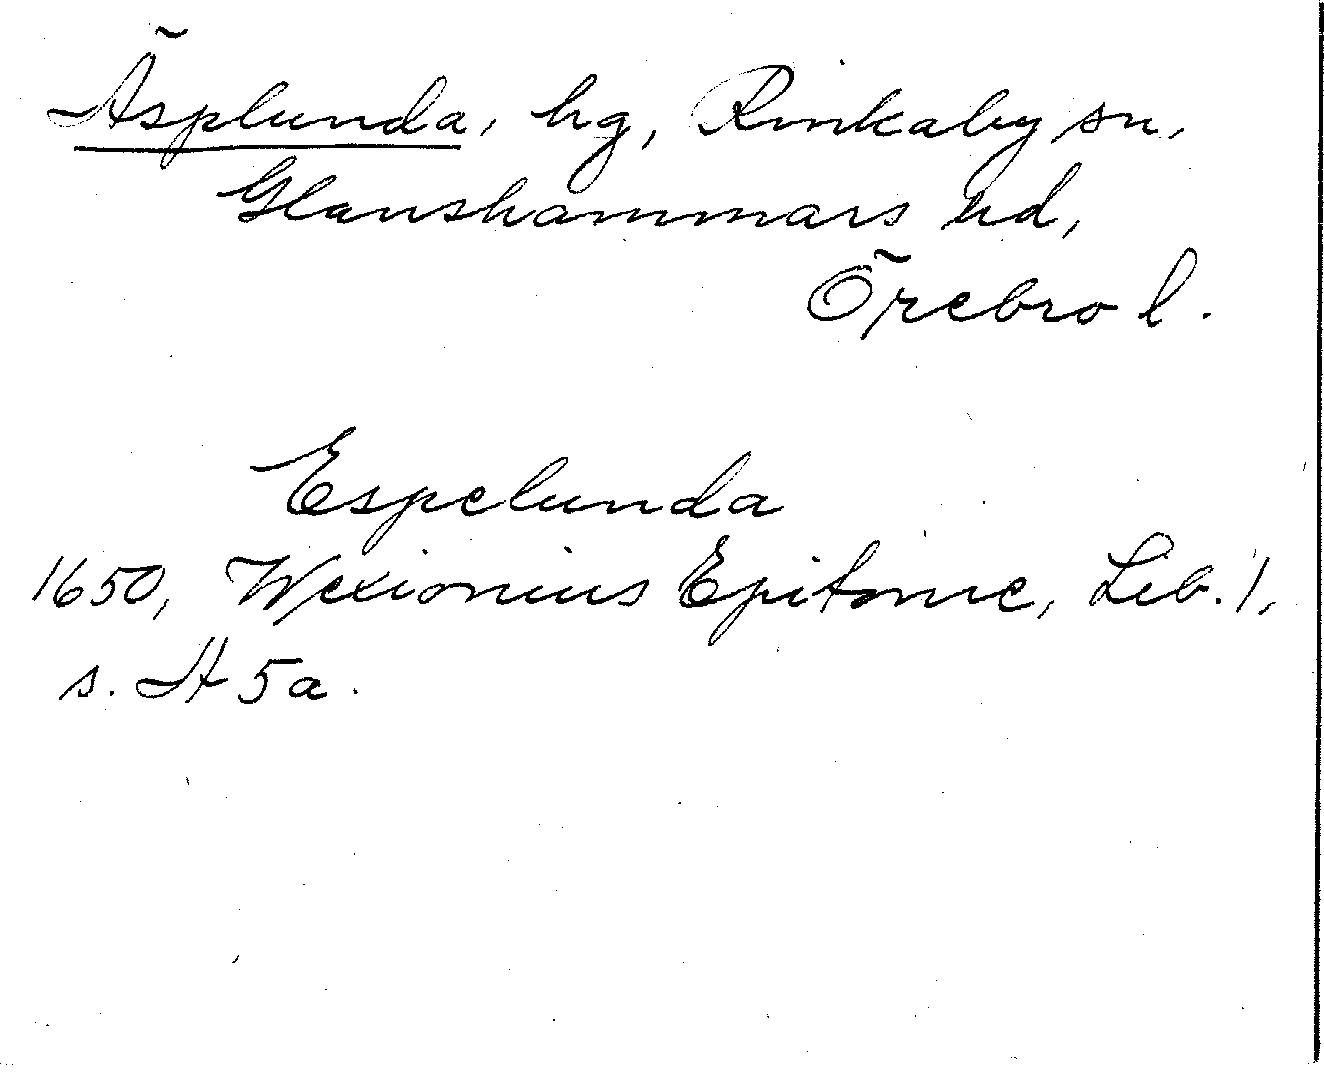 Äsplunda, hg, Rinkaby sn,
Glanshammars hd,
Örebro l.
Espelunda
1650, Wexionius Epitome, Lib. 1,
s. A 5a.